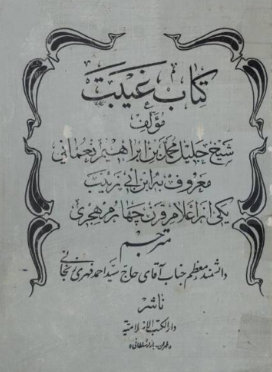 کتاب غیبت
مؤلف
شیخ جلیل محمد بن ابراهیم نعمانی
معروف به ابن ابی زینب
یکی از اعلام قرن چهارم هجری
مترجم
دانشمند معظم جناب آقای حاج سید احمد فهری زنجانی
ناشر
دار الکتب الاسلامیة
تهران - بازار سلطانی